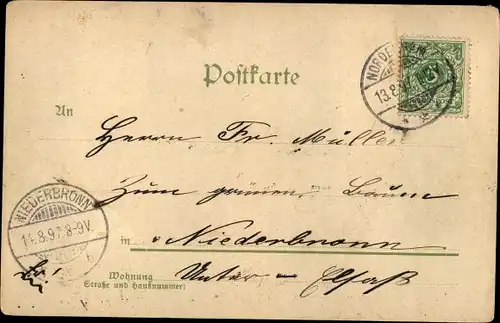 Postkarte
An
Herrn Fr. Müller
Zum grünen Baum
in Niederbronn
Wohnung
Straße und Hausnummer
Unter-Elsaß
NIEDERBRONN
8-9V.
13.8.